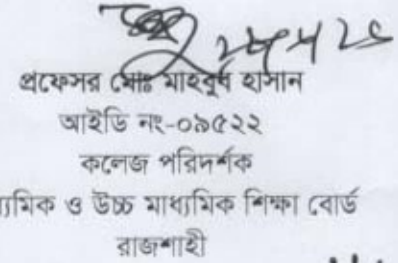 প্রফেসর মোঃ মাহবুব হাসান
আইডি নং-০৯৫২২
কলেজ পরিদর্শক
্যমিক ও উচ্চ মাধ্যমিক শিক্ষা বোর্ড
রাজশাহী